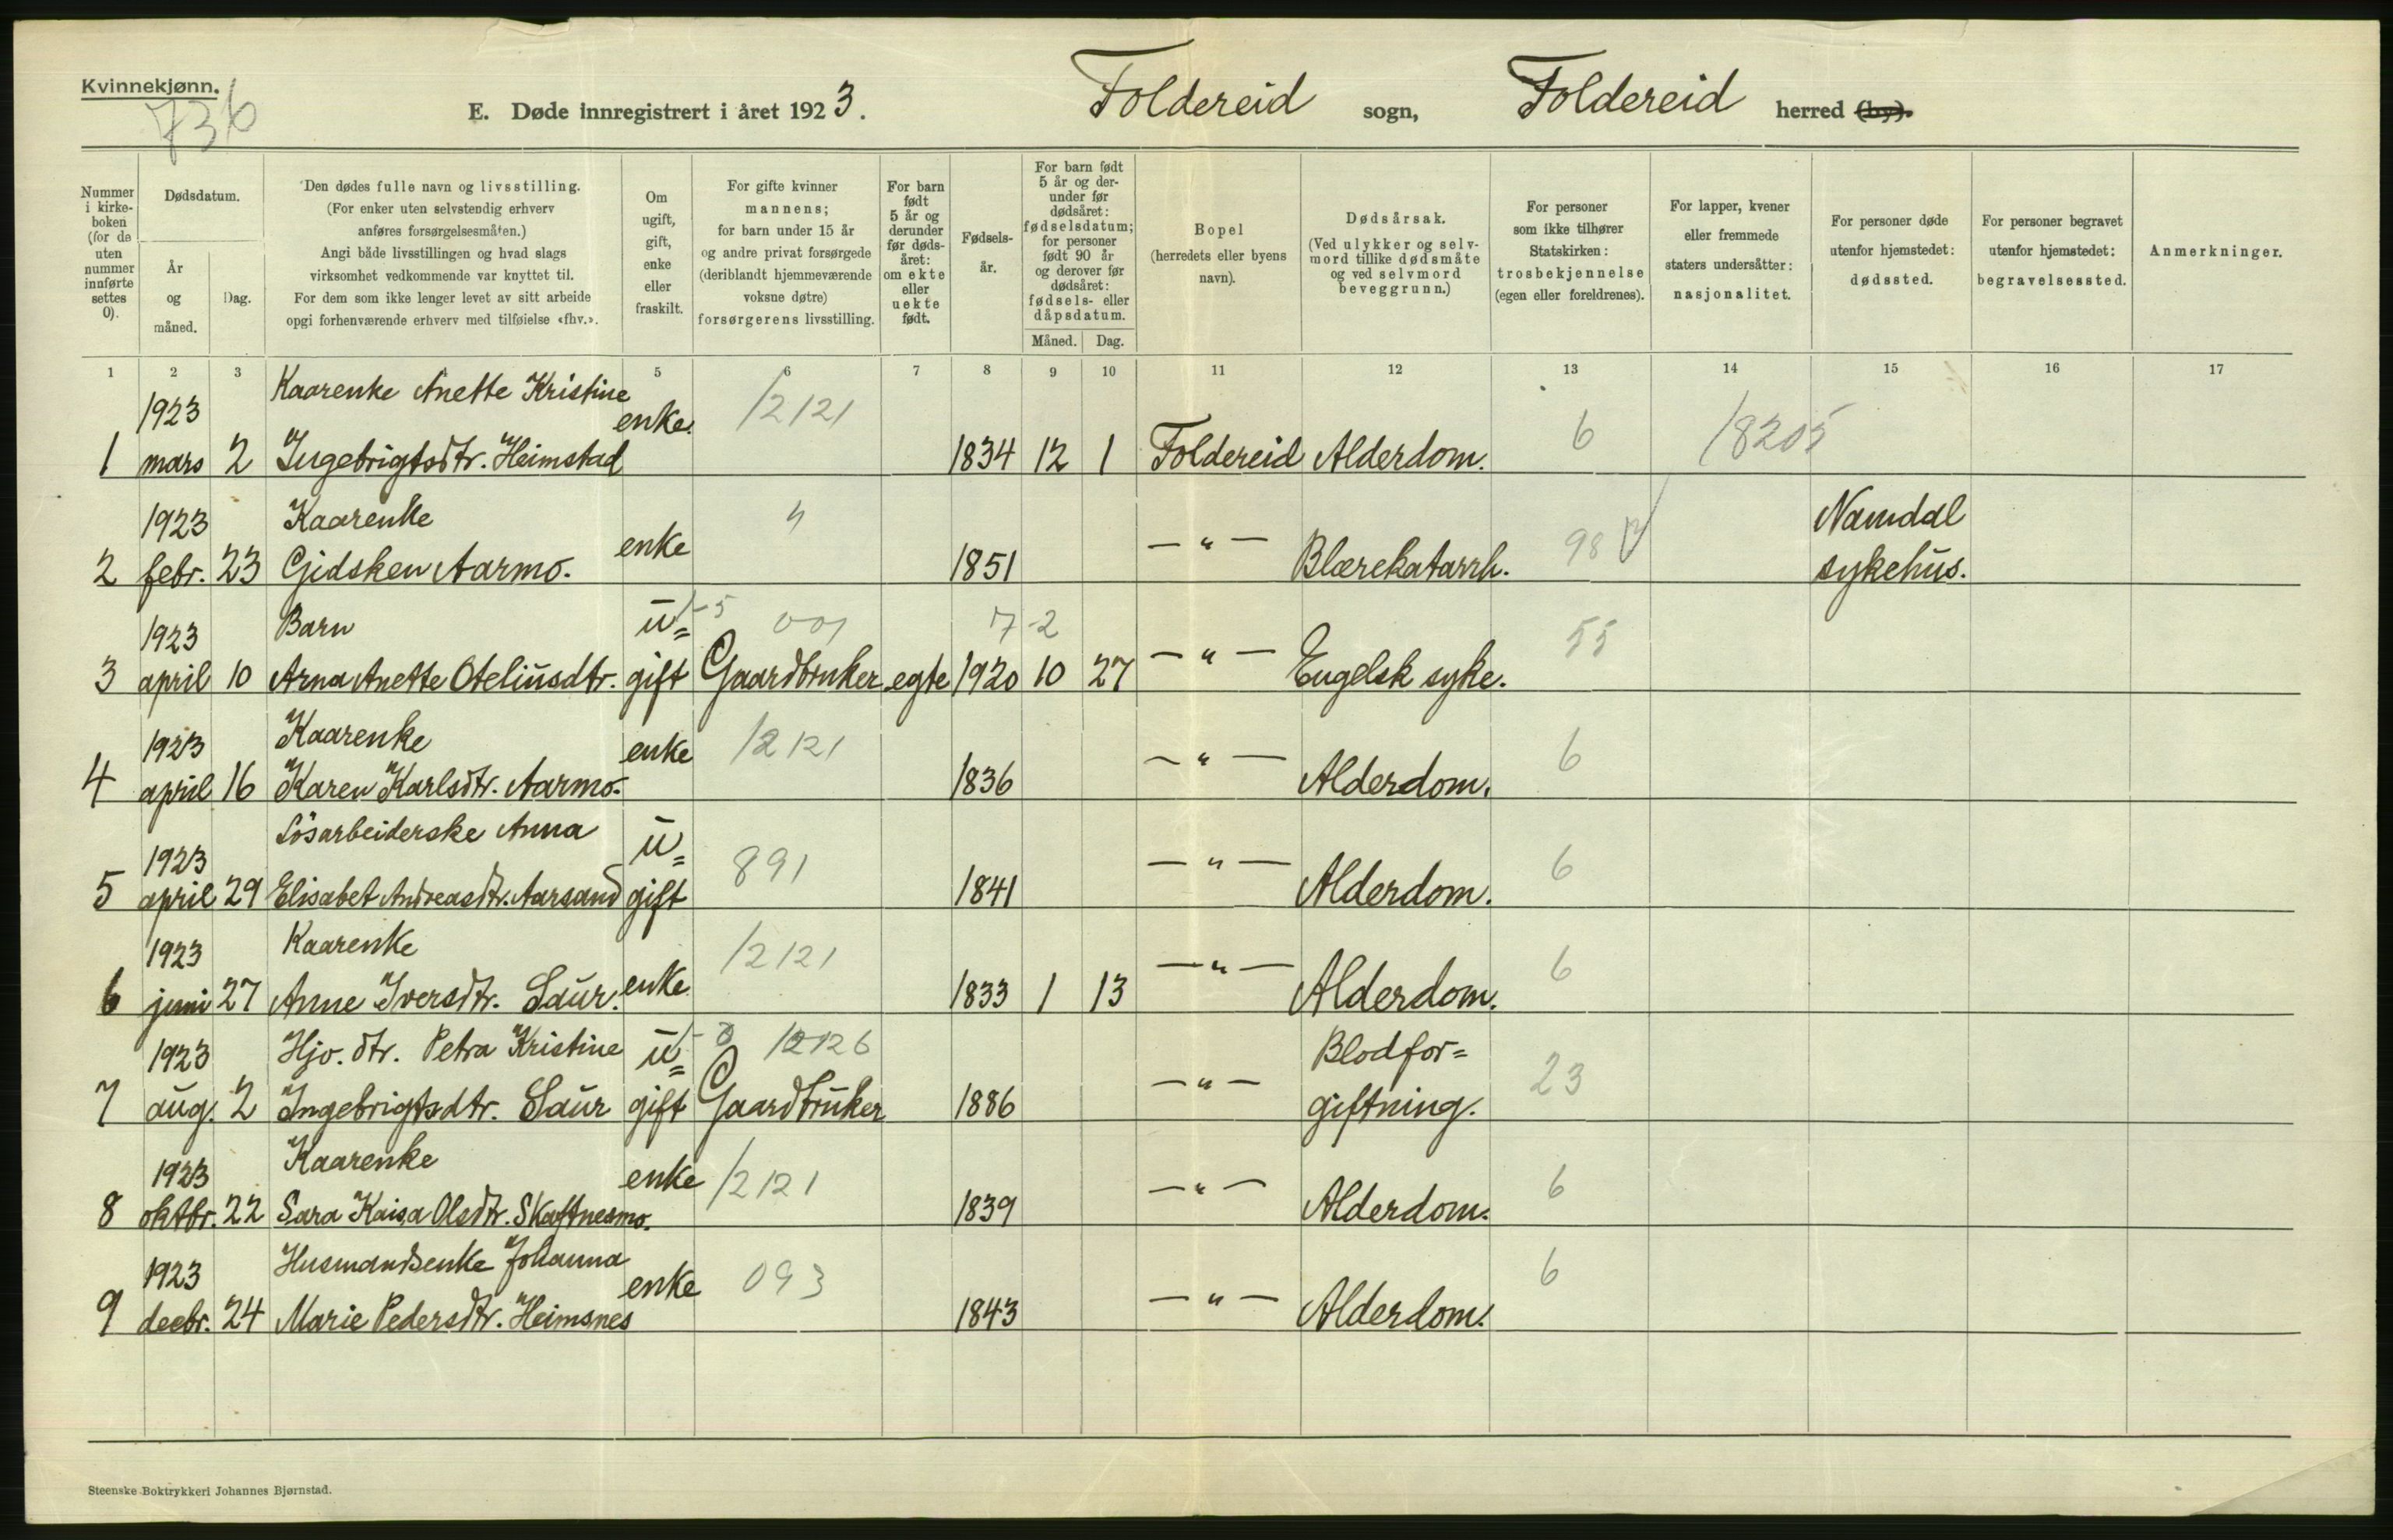 Kvinnekjønn.
736
E. Døde innregistrert i året 1923.
Foldereid sogn, Foldereid herred (by).
Nummer i kirkeboken (for de uten nummer innførte settes 0).
Dødsdatum.
År og måned.
Dag.
Den dødes fulle navn og livsstilling.
(For enker uten selvstendig erhverv anføres forsørgelsesmåten.)
Angi både livsstillingen og hvad slags virksomhet vedkommende var knyttet til.
For dem som ikke lenger levet av sitt arbeide opgi forhenværende erhverv med tilføielse «fhv.».
Om ugift, gift, enke eller fraskilt.
For gifte kvinner mannens; for barn under 15 år og andre privat forsørgede (deriblandt hjemmeværende voksne døtre) forsørgerens livsstilling.
For barn født 5 år og derunder før dødsåret: om ekte eller uekte født.
Fødselsår.
For barn født 5 år og derunder før dødsåret: fødselsdatum; for personer født 90 år og derover før dødsåret: fødsels- eller dåpsdatum.
Måned. Dag.
Bopel (herredets eller byens navn).
Dødsårsak. (Ved ulykker og selvmord tillike dødsmåte og ved selvmord beveggrunn.)
For personer som ikke tilhører Statskirken: trosbekjennelse (egen eller foreldrenes).
For lapper, kvener eller fremmede staters undersåtter: nasjonalitet.
For personer døde utenfor hjemstedet: dødssted.
For personer begravet utenfor hjemstedet: begravelsessted.
Anmerkninger.
1 2 3 5 6 7 8 9 10 11 12 13 14 15 16 17
1923 Kaarenke Anette Kristine enke. 12121 6 18205
1 mars 2 Ingebrigtsdtr. Heimstad 1834 12 1 Foldereid Alderdom.
1923 Kaarenke enke " — " — 98 Namdal
2 febr. 23 Gidsken Aarmo. 1851 Blærekatarrh. sykehus.
1923 Barn u= 001 7 2 — " — 55
3 april 10 Arna Anette Oteliusdtr. gift Gaardbruker egte 1920 10 27 Engelsk syke.
1923 Kaarenke enke 12121 — " — 6
4 april 16 Karen Karlsdtr. Aarmo. 1836 Alderdom.
1923 Løsarbeiderske Anna u= 891 — " — 6
5 april 29 Elisabet Andreasdtr. Aarsand gift 1841 Alderdom.
1923 Kaarenke 12121 — " — 6
6 juni 27 Anne Iversdtr. Saur. enke 1833 1 13 Alderdom.
1923 Hjv. dtr. Petra Kristine u= 12126 — " — Blodfor= 23
7 aug. 2 Ingebrigtsdtr. Saur gift Gaardbruker 1886 giftning.
1923 Kaarenke enke 12121 — " — 6
8 oktbr. 22 Sara Kaisa Olsdtr. Skaftnesmo. 1839 Alderdom.
1923 Husmandsenke Johanna enke 093 — " — 6
9 decbr. 24 Marie Pedersdtr. Heimsnes 1843 Alderdom.
Steenske Boktrykkeri Johannes Bjørnstad.